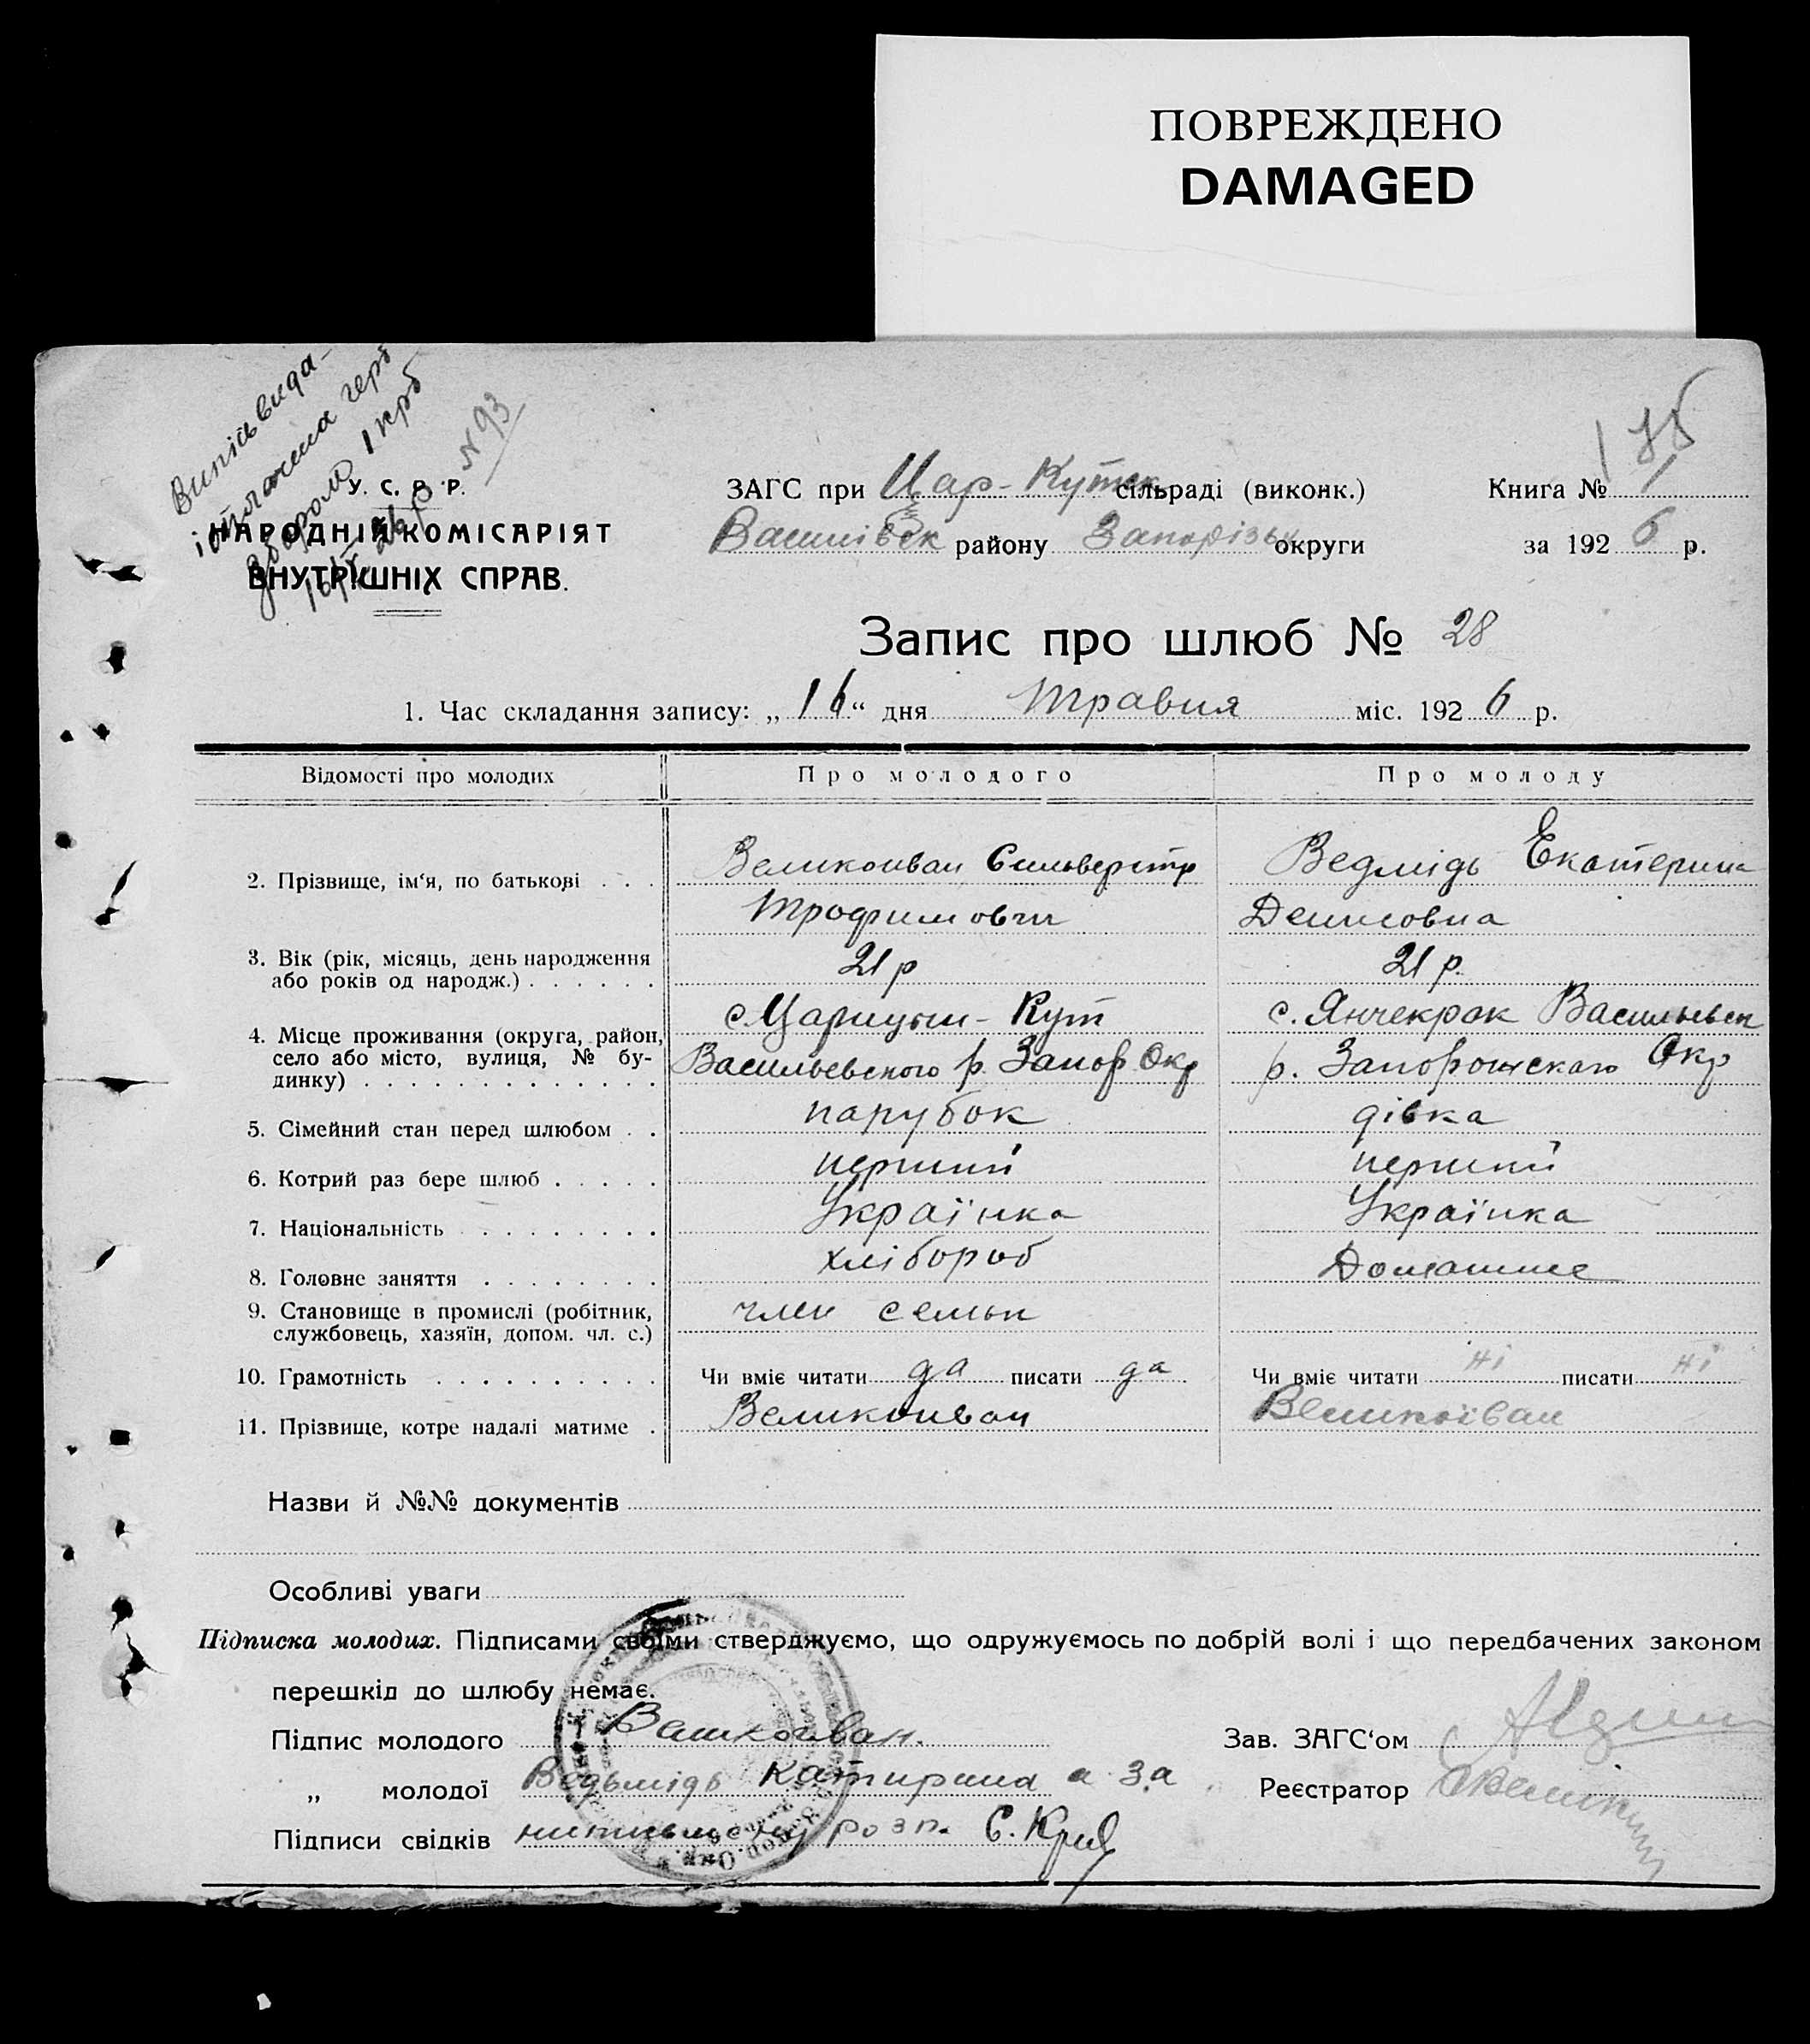 ПОВРЕЖДЕНО
DAMAGED
Випісь вида-
і оплачена герб
збором 1 крб
№ 93
У. С. Р. Р.
НАРОДНІЙ КОМІСАРІЯТ
ВНУТРІШНІХ СПРАВ.
ЗАГС при Цар-Кутск сільраді (виконк.) Книга № 1
Василівск району Запорізьк округи за 1926 р.
Запис про шлюб № 28
1. Час складання запису: „16“ дня Травня міс. 1926 р.
Відомості про молодих Про молодого Про молоду
2. Прізвище, ім‘я, по батькові . . . Великоиван Сильверстр Ведмідь Екатерина
Трофимович Денисовна
3. Вік (рік, місяць, день народження або років од народж.) . . . . . . 21 р 21 р.
4. Місце проживання (округа, район, село або місто, вулиця, № бу-динку) . . . . . . . . . . . . . с. Царицын-Кут с. Янчекрак Васильевск
Васильевского р. Запор Окр р. Запорожскаго Окр
5. Сімейний стан перед шлюбом . . парубок дівка
6. Котрий раз бере шлюб . . . . . перший перший
7. Національність . . . . . . . . . Українка Українка
8. Головне заняття . . . . . . . . хлібороб Домашнє
9. Становище в промислі (робітник, службовець, хазяїн, допом. чл. с.) член семьи
10. Грамотність . . . . . . . . . . Чи вміє читати да писати да Чи вміє читати ні писати ні
11. Прізвище, котре надалі матиме . Великоиван Великоїван
Назви й №№ документів
Особливі уваги
Підписка молодих. Підписами своїми стверджуємо, що одружуємось по добрій волі і що передбачених законом
перешкід до шлюбу немає.
Підпис молодого Великоиван. Зав. ЗАГС‘ом
„ молодої Ведьмідь Катирина а за Реєстратор
Підписи свідків розп. С. Крив